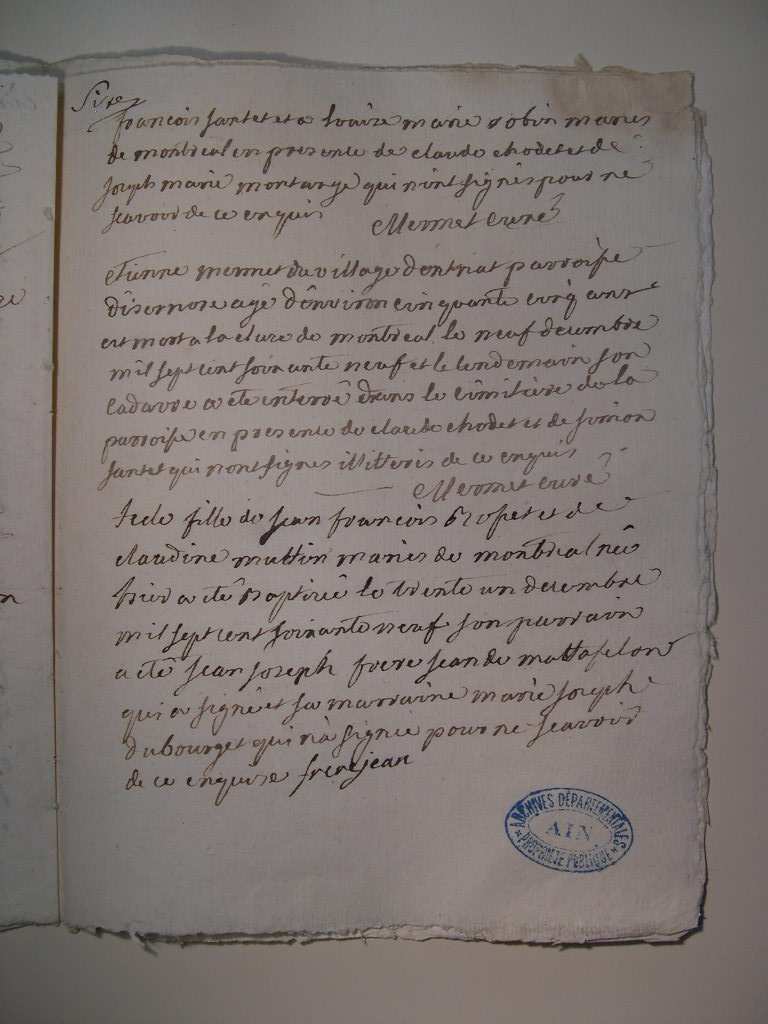 Sixe
francois santet et a louise marie robin maries
de montreal en presente de claude chodet et de
joseph marie montange qui nont signés pour ne
scavoir de ce enquis
Mermet curé
etienne mermet du village d'entriat parroisse
disernore agé d'environ cinquante cinq ans
est mort a la cluse de montreal le neuf decembre
mil sept cent soixante neuf et le lendemain son
cadavre a eté enterré dans le cimitiere de la
parroisse en presente de claude chodet et de simon
santet qui nont signes illitteris de ce enquis
Mermet curé
fille de jean françois et de
claudine mattin maries de montreal née
hier a eté baptisée le trente un decembre
mil sept cent soixante neuf son parrain
a eté jean joseph frere jean de mattafelon
qui a signé et sa marraine marie joseph
dubourget qui n'a signée pour ne scavoir
de ce enquise frerejean
ARCHIVES DÉPARTEMENTALES
AIN
PROPRIÉTÉ PUBLIQUE